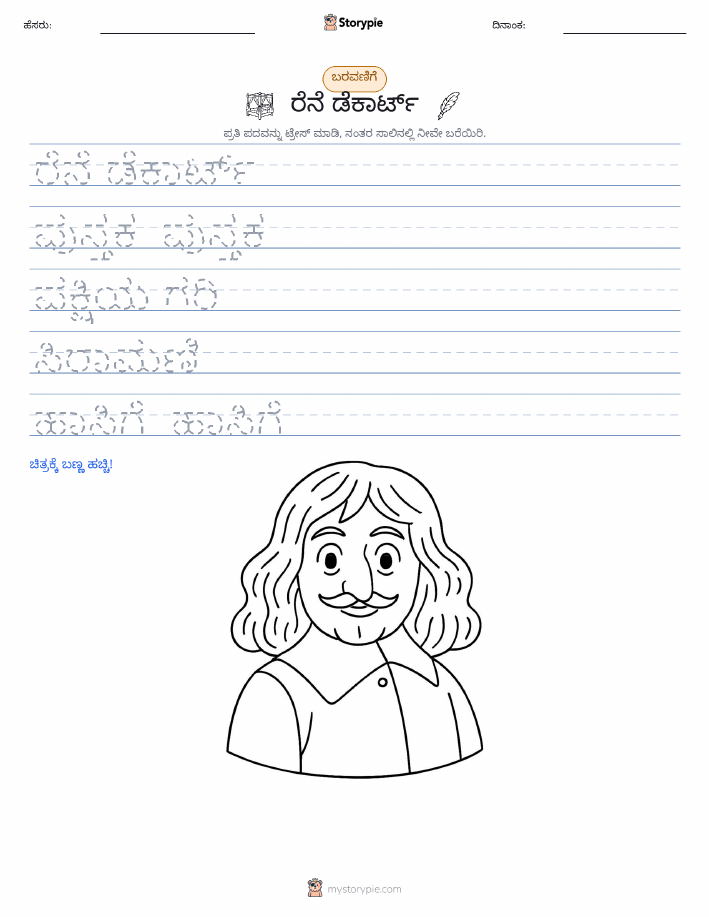 ಹೆಸರು:
Storypie
ದಿನಾಂಕ:
ಬರವಣಿಗೆ
ರೆನೆ ಡೆಕಾರ್ಟ್
ಪ್ರತಿ ಪದವನ್ನು ಟ್ರೇಸ್ ಮಾಡಿ, ನಂತರ ಸಾಲಿನಲ್ಲಿ ನೀವೇ ಬರೆಯಿರಿ.
ರೆನೆ ಡೆಕಾರ್ಟ್
ಪುಸ್ತಕ ಪುಸ್ತಕ
ಪಕ್ಷಿಯ ಗರಿ
ಹಾಸಿಗೆ ಹಾಸಿಗೆ
ಚಿತ್ರಕ್ಕೆ ಬಣ್ಣ ಹಚ್ಚಿ!
mystorypie.com